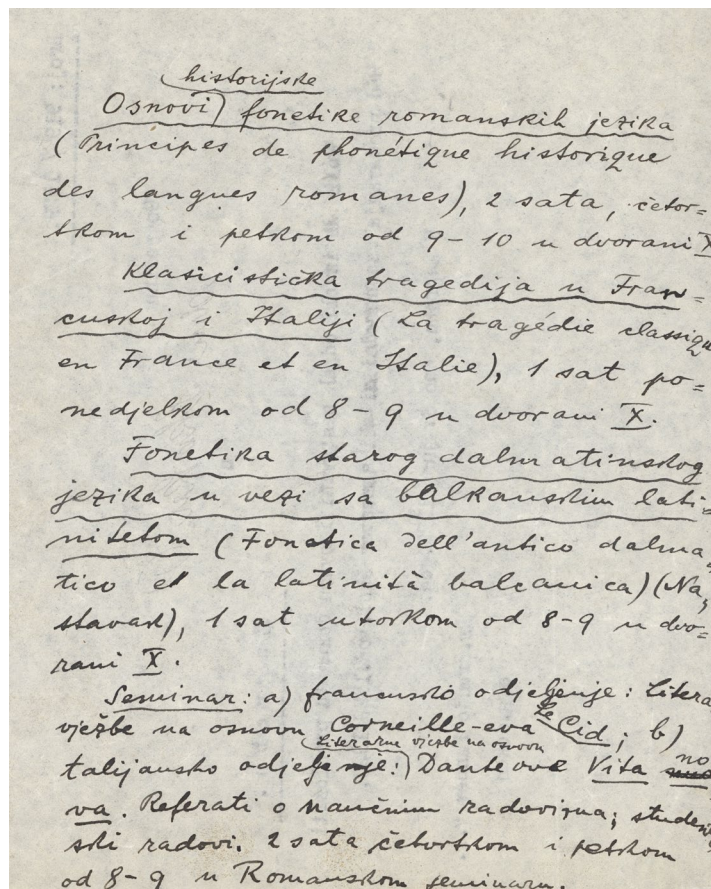 historijske
Osnovi fonetike romanskih jezika
(Principes de phonétique historique
des langues romanes), 2 sata, četvr=
tkom i petkom od 9-10 u dvorani X
Klasicistička tragedija u Fran=
cuskoj i Italiji (La tragédie classique
en France et en Italie), 1 sat po=
nedjelkom od 8-9 u dvorani X.
Fonetika starog dalmatinskog
jezika u vezi sa balkanskim lati=
nitetom (Fonetica dell'antico dalma=
tico e la latinità balcanica) (Na=
stavak), 1 sat utorkom od 8-9 u dvo=
rani X.
Seminar: a) francusko odjeljenje: Litera
vježbe na osnovu Corneille-eva Le Cid; b)
Literarne vježbe na osnovu
talijansko odjeljenje: Danteove Vita no
va. Referati o naučnim radovima; studen
ski radovi. 2 sata četvrtkom i petkom
od 8-9 u Romanskom seminaru.